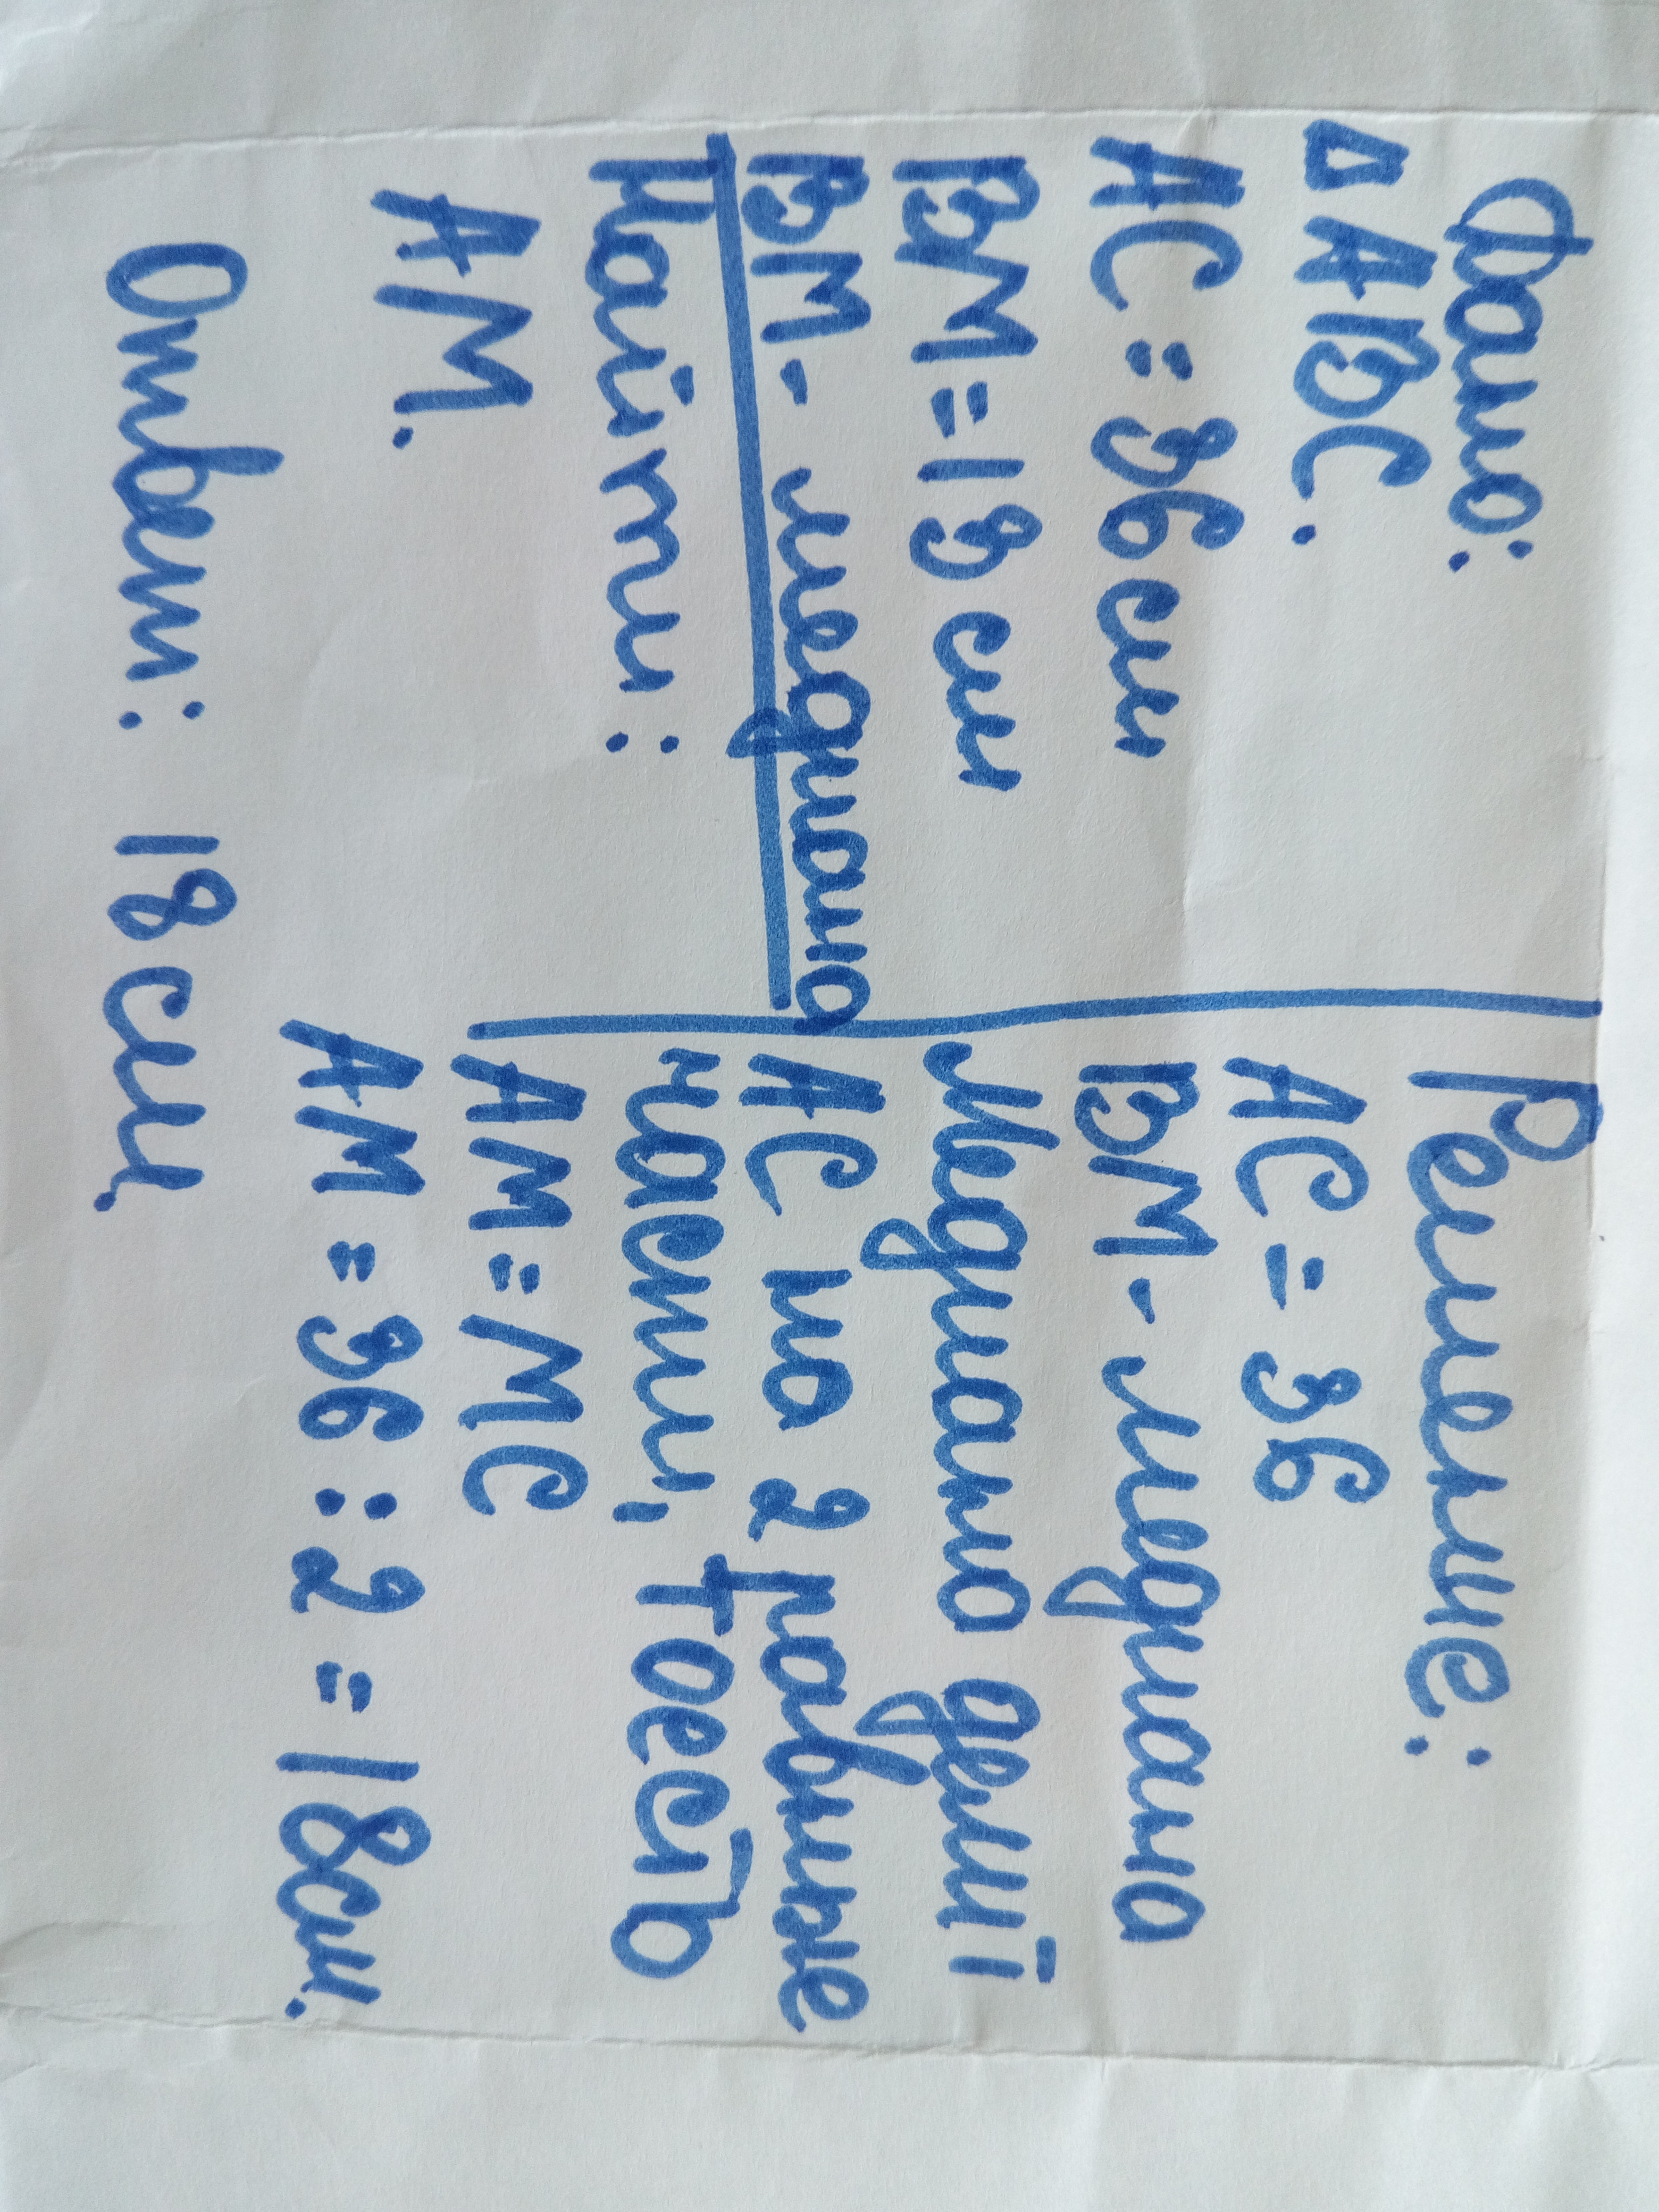 Дано:
△ABC.
AC = 36 см
BM = 19 см
BM - медиана
Найти:
AM.
Решение:
AC = 36
BM - медиана
Медиана делит
AC на 2 равные
части, тоесть
AM = MC
AM = 36 : 2 = 18см.
Ответ: 18 см.